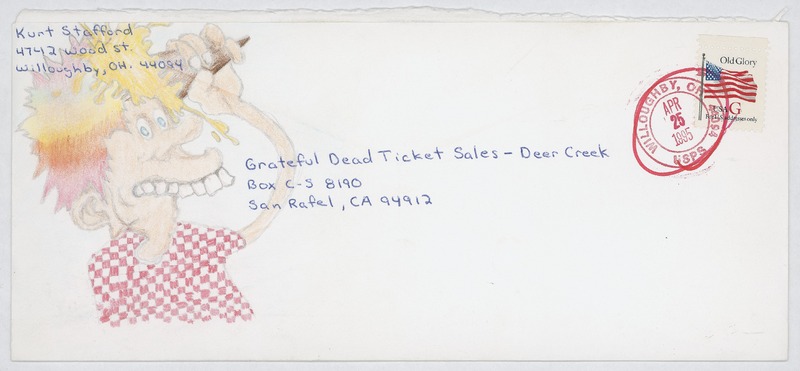 Kurt Stafford
4742 Wood St.
Willoughby, OH. 44094
Old Glory
USA G
For U.S. addresses only
WILLOUGHBY, OH
APR
25
1995
USPS
Grateful Dead Ticket Sales - Deer Creek
Box C-S 8190
San Rafel, CA 94912